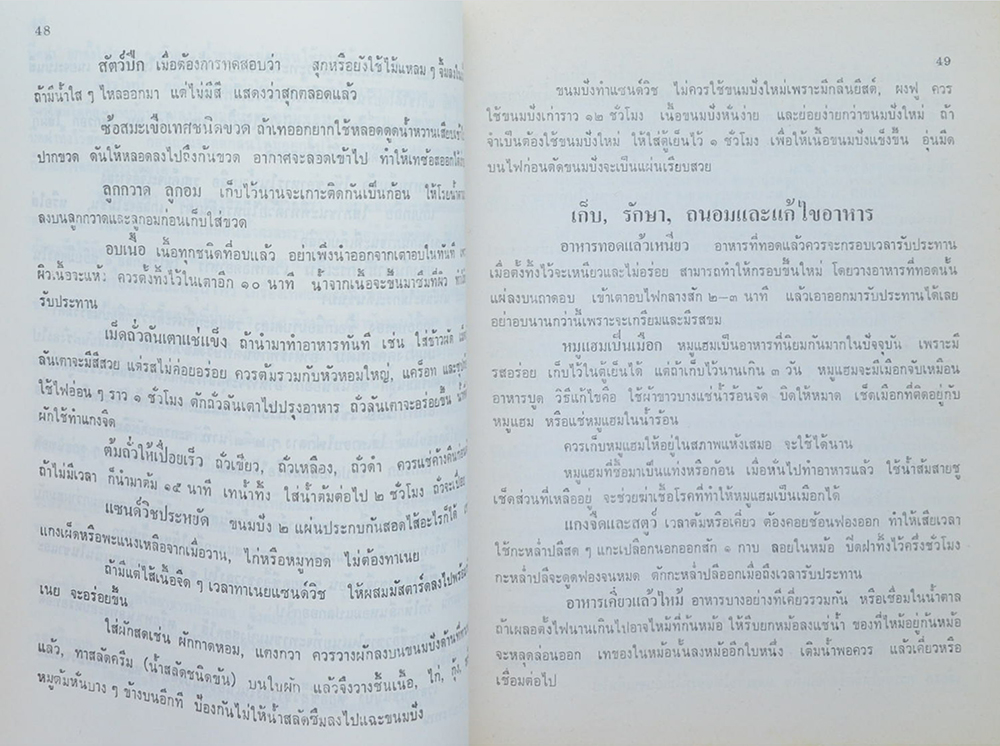 48
สัตว์ปีก เมื่อต้องการทดสอบว่า สุกหรือยังใช้ไม้แหลม ๆ จิ้มลงใน
ถ้ามีน้ำใส ๆ ไหลออกมา แต่ไม่มีสี แสดงว่าสุกตลอดแล้ว
ซ้อสมะเขือเทศชนิดขวด ถ้าเทออกยากใช้หลอดดูดน้ำหวานเสียบเข้าไป
ปากขวด ดันให้หลอดลงไปถึงก้นขวด อากาศจะลอดเข้าไป ทำให้เทซ้อสออกได้
ลูกกวาด ลูกอม เก็บไว้นานจะเกาะติดกันเป็นก้อน ให้โรยน้ำตาล
ลงบนลูกกวาดและลูกอมก่อนเก็บใส่ขวด
อบเนื้อ เนื้อทุกชนิดที่อบแล้ว อย่าเพิ่งนำออกจากเตาอบในทันที
ผิวเนื้อจะแห้ง ควรตั้งทิ้งไว้ในเตาอีก ๑๐ นาที น้ำจากเนื้อจะขึ้นมาซึมที่ผิว
รับประทาน
เม็ดถั่วลันเตาแช่แข็ง ถ้านำมาทำอาหารทันที เช่น ใส่ข้าวผัด
ลันเตาจะมีสีสวย แต่รสไม่ค่อยอร่อย ควรต้มรวมกับหัวหอมใหญ่, แคร็อท
ใช้ไฟอ่อน ๆ ราว ๑ ชั่วโมง ตักถั่วลันเตาไปปรุงอาหาร ถั่วลันเตาจะอร่อยขึ้น
ผักใช้ทำแกงจืด
ต้มถั่วให้เปื่อยเร็ว ถั่วเขียว, ถั่วเหลือง, ถั่วดำ ควรแช่ค้างคืนก่อน
ถ้าไม่มีเวลา ก็นำมาต้ม ๑๕ นาที เทน้ำทิ้ง ใส่น้ำต้มต่อไป ๒ ชั่วโมง ถั่วจะเปื่อย
แซนด์วิชประหยัด ขนมปัง ๒ แผ่นประกบกันสอดไส้อะไรก็ได้
แกงเผ็ดหรือพะแนงเหลือจากเมื่อวาน, ไก่หรือหมูทอด ไม่ต้องทาเนย
ถ้ามีแต่ไส้เนื้อจืด ๆ เวลาทาเนยแซนด์วิช ให้ผสมมัสตาร์ดลงไปพร้อม
เนย จะอร่อยขึ้น
ใส่ผักสดเช่น ผักกาดหอม, แตงกวา ควรวางผักลงบนขนมปังด้านที่ทา
แล้ว, ทาสลัดครีม (น้ำสลัดชนิดข้น) บนใบผัก แล้วจึงวางชิ้นเนื้อ, ไก่, กุ้ง,
หมูต้มหั่นบาง ๆ ข้างบนอีกที ป้องกันไม่ให้น้ำสลัดซึมลงไปแฉะขนมปัง
49
ขนมปังทำแซนด์วิช ไม่ควรใช้ขนมปังใหม่เพราะมีกลิ่นยีสต์, ผงฟู ควร
ใช้ขนมปังเก่าราว ๑๒ ชั่วโมง เนื้อขนมปังหั่นง่าย และย่อยง่ายกว่าขนมปังใหม่ ถ้า
จำเป็นต้องใช้ขนมปังใหม่ ให้ใส่ตู้เย็นไว้ ๑ ชั่วโมง เพื่อให้เนื้อขนมปังแข็งขึ้น อุ่นมีด
บนไฟก่อนตัดขนมปังจะเป็นแผ่นเรียบสวย
เก็บ, รักษา, ถนอมและแก้ไขอาหาร
อาหารทอดแล้วเหนียว อาหารที่ทอดแล้วควรจะกรอบเวลารับประทาน
เมื่อตั้งทิ้งไว้จะเหนียวและไม่อร่อย สามารถทำให้กรอบขึ้นใหม่ โดยวางอาหารที่ทอดนั้น
แผ่ลงบนถาดอบ เข้าเตาอบไฟกลางสัก ๒–๓ นาที แล้วเอาออกมารับประทานได้เลย
อย่าอบนานกว่านี้เพราะจะเกรียมและมีรสขม
หมูแฮมเป็นเมือก หมูแฮมเป็นอาหารที่นิยมกันมากในปัจจุบัน เพราะมี
รสอร่อย เก็บไว้ในตู้เย็นได้ แต่ถ้าเก็บไว้นานเกิน ๓ วัน หมูแฮมจะมีเมือกจับเหมือน
อาหารบูด วิธีแก้ไขคือ ใช้ผ้าขาวบางแช่น้ำร้อนจัด บิดให้หมาด เช็ดเมือกที่ติดอยู่กับ
หมูแฮม หรือแช่หมูแฮมในน้ำร้อน
ควรเก็บหมูแฮมให้อยู่ในสภาพแห้งเสมอ จะใช้ได้นาน
หมูแฮมที่ซื้อมาเป็นแท่งหรือก้อน เมื่อหั่นไปทำอาหารแล้ว ใช้น้ำส้มสายชู
เช็ดส่วนที่เหลืออยู่ จะช่วยฆ่าเชื้อโรคที่ทำให้หมูแฮมเป็นเมือกได้
แกงจืดและสตูว์ เวลาต้มหรือเคี่ยว ต้องคอยช้อนฟองออก ทำให้เสียเวลา
ใช้กะหล่ำปลีสด ๆ แกะเปลือกนอกออกสัก ๑ กาบ ลอยในหม้อ ปิดฝาทิ้งไว้ครึ่งชั่วโมง
กะหล่ำปลีจะดูดฟองจนหมด ตักกะหล่ำปลีออกเมื่อถึงเวลารับประทาน
อาหารเคี่ยวแล้วไหม้ อาหารบางอย่างที่เคี่ยวรวมกัน หรือเชื่อมในน้ำตาล
ถ้าเผลอตั้งไฟนานเกินไปอาจไหม้ที่ก้นหม้อ ให้รีบยกหม้อลงแช่น้ำ ของที่ไหม้อยู่ก้นหม้อ
จะหลุดล่อนออก เทของในหม้อนั้นลงหม้ออีกใบหนึ่ง เติมน้ำพอควร แล้วเคี่ยวหรือ
เชื่อมต่อไป